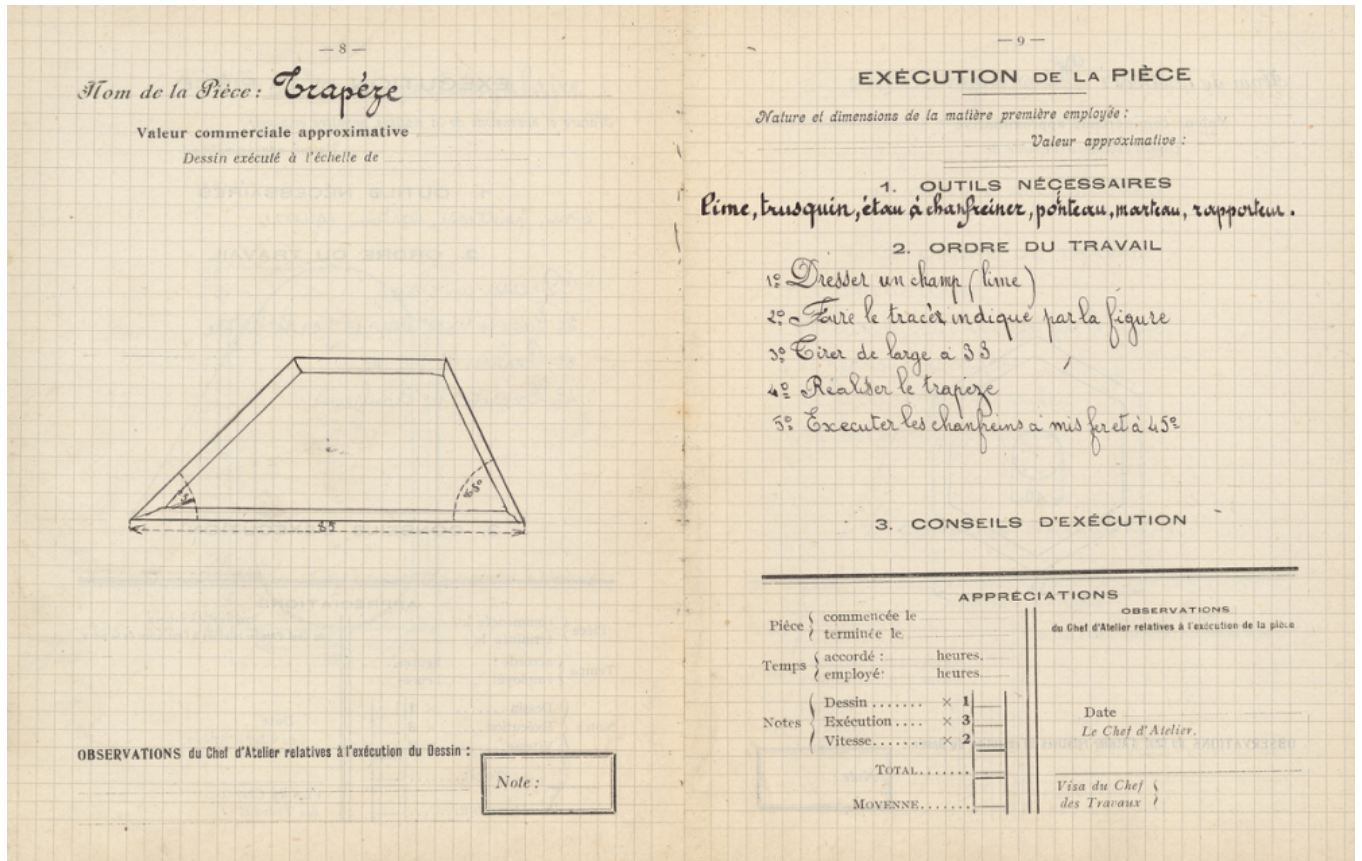 — 8 —
Nom de la Pièce : Trapéze
Valeur commerciale approximative
Dessin exécuté à l'échelle de
65°
85
OBSERVATIONS du Chef d'Atelier relatives à l'exécution du Dessin :
Note :
— 9 —
EXÉCUTION DE LA PIÈCE
Nature et dimensions de la matière première employée :
Valeur approximative :
1. OUTILS NÉCESSAIRES
Lime, trusquin, étau à chanfreiner, pointeau, marteau, rapporteur.
2. ORDRE DU TRAVAIL
1º Dresser un champ (lime)
2º Faire le tracér indiqué par la figure
3º Tirer de large à 33
4º Réaliser le trapèze
5º Executer les chanfreins a mis fer et à 45º
3. CONSEILS D'EXÉCUTION
APPRÉCIATIONS
Pièce { commencée le
terminée le
Temps { accordé : heures.
employé : heures
Notes { Dessin ....... × 1
Exécution .... × 3
Vitesse ....... × 2
TOTAL .......
MOYENNE .......
OBSERVATIONS
du Chef d'Atelier relatives à l'exécution de la pièce
Date
Le Chef d'Atelier,
Visa du Chef {
des Travaux